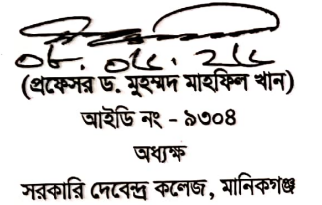 ০৮. ০৮. ২৮
(প্রফেসর ড. মুহম্মদ মাহফিল খান)
আইডি নং - ৯৩০৪
অধ্যক্ষ
সরকারি দেবেন্দ্র কলেজ, মানিকগঞ্জ